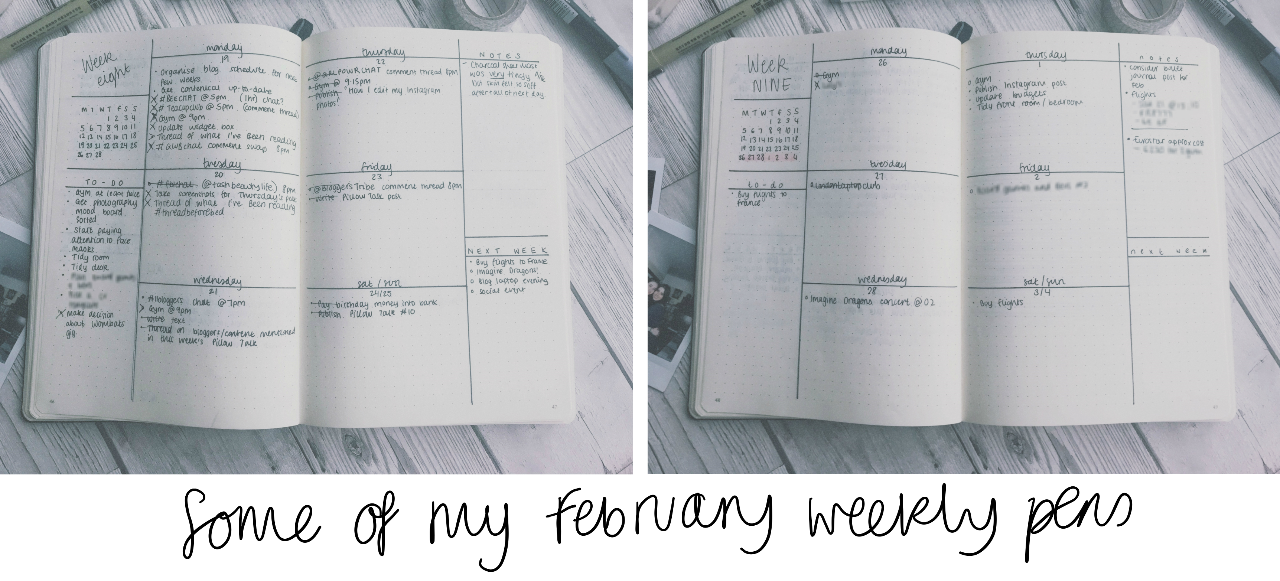 Week
eight
M T W T F S S
1 2 3 4
5 6 7 8 9 10 11
12 13 14 15 16 17 18
19 20 21 22 23 24 25
26 27 28
TO-DO
Gym at least twice
Get photography
mood board
sorted
Start paying
attention to face
masks
Tidy room
Tidy desk
Make decision
about Wombats
gig
monday
19
Organise blog schedule for next
few weeks
Get comments up-to-date
#BEECHAT @ 5pm (1hr) chat?
#Teacupclub @ 5pm (comment thread)
Gym @ 9pm
Update widget box
Thread of what I've Been reading
comment swap 8pm
tuesday
20
(@tashbeautylife) 8pm
Take comments for Thursday's post
Thread of what I've Been reading
#threadbeforebed
wednesday
21
#Bloggers chat @ 7pm
Gym @ 9pm
Write text
Thread on bloggers/content mentioned
in this week's Pillow Talk
thursday
22
POWRCHAT comment thread 8pm
Gym @ 9:15pm
Publish "How I edit my Instagram
photos"
friday
23
@BloggersTribe comment thread 8pm
Write Pillow Talk post
sat/sun
24/25
Pay birthday money into bank
Publish Pillow Talk #10
NOTES
Charcoal
was very
after
NEXT WEEK
Buy flights to France
Imagine Dragons
Blog laptop evening
Social event
46
47
Week
NINE
M T W T F S S
1 2 3 4
5 6 7 8 9 10 11
12 13 14 15 16 17 18
19 20 21 22 23 24 25
26 27 28 1 2 3 4
to-do
Buy flights to
France
monday
26
Gym
tuesday
27
LondonLaptopClub
wednesday
28
Imagine Dragons concert @ O2
thursday
1
Gym
Publish Instagram post
Update budgets
Tidy home room/bedroom
friday
2
Board games and
sat/sun
3/4
Buy flights
notes
Consider bullet
journal post for
Feb
Flights
Eurostar approx cost
next week
48
Some of my February weekly pens